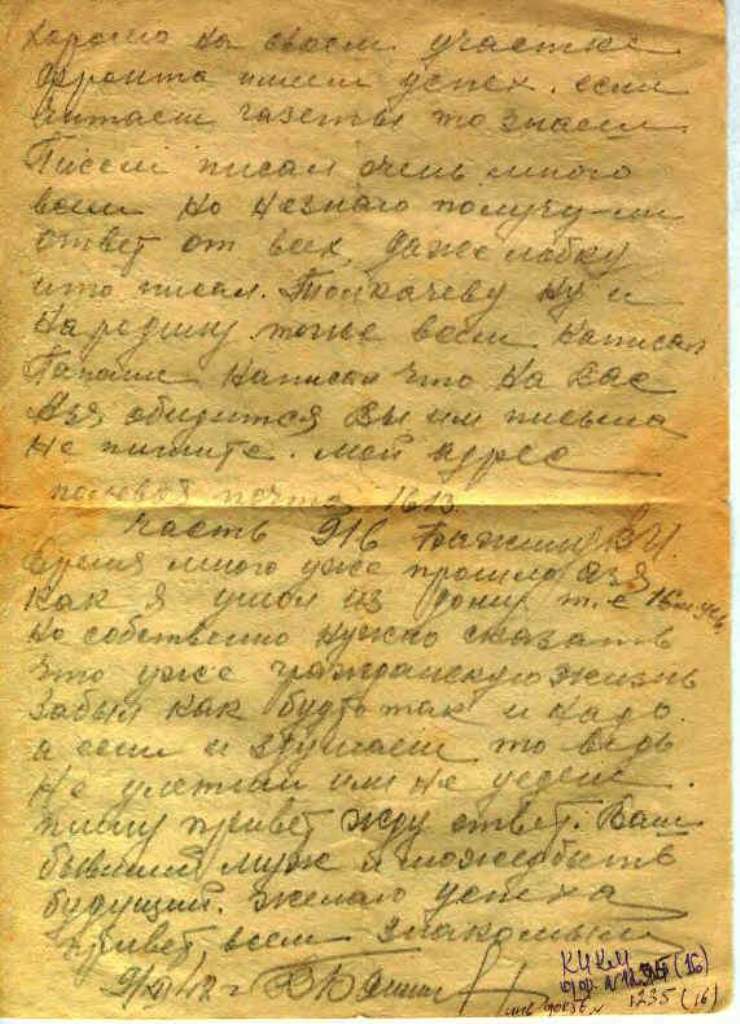 хорошо на своем участке
фронта имеем успех. если
читаеш газеты то знаеш
Писем писал очень много
всем но незнаю получу-ли
ответ от всех, даже
что писал. Толкачеву ну и
На родину тоже всем написал
Папаше написал что на вас
Ася, обидится Вы им письма
не пишите. мой адрес
полевая почта 1613
часть 916 В И.
Время много уже прошло Ася
как я ушол из дому т.е 16
но собственно нужно сказать
что уже гражданскую жизнь
Забыл как будто так и надо.
а если и здумаеш то ведь
Не улетиш или не уедеш.
пишу привет жду ответ. Ваш
бывший муж и можетбыть
будущий. желаю успеха
привет, всем знакомым
42 г
ККМ
(16)
1235 (16)